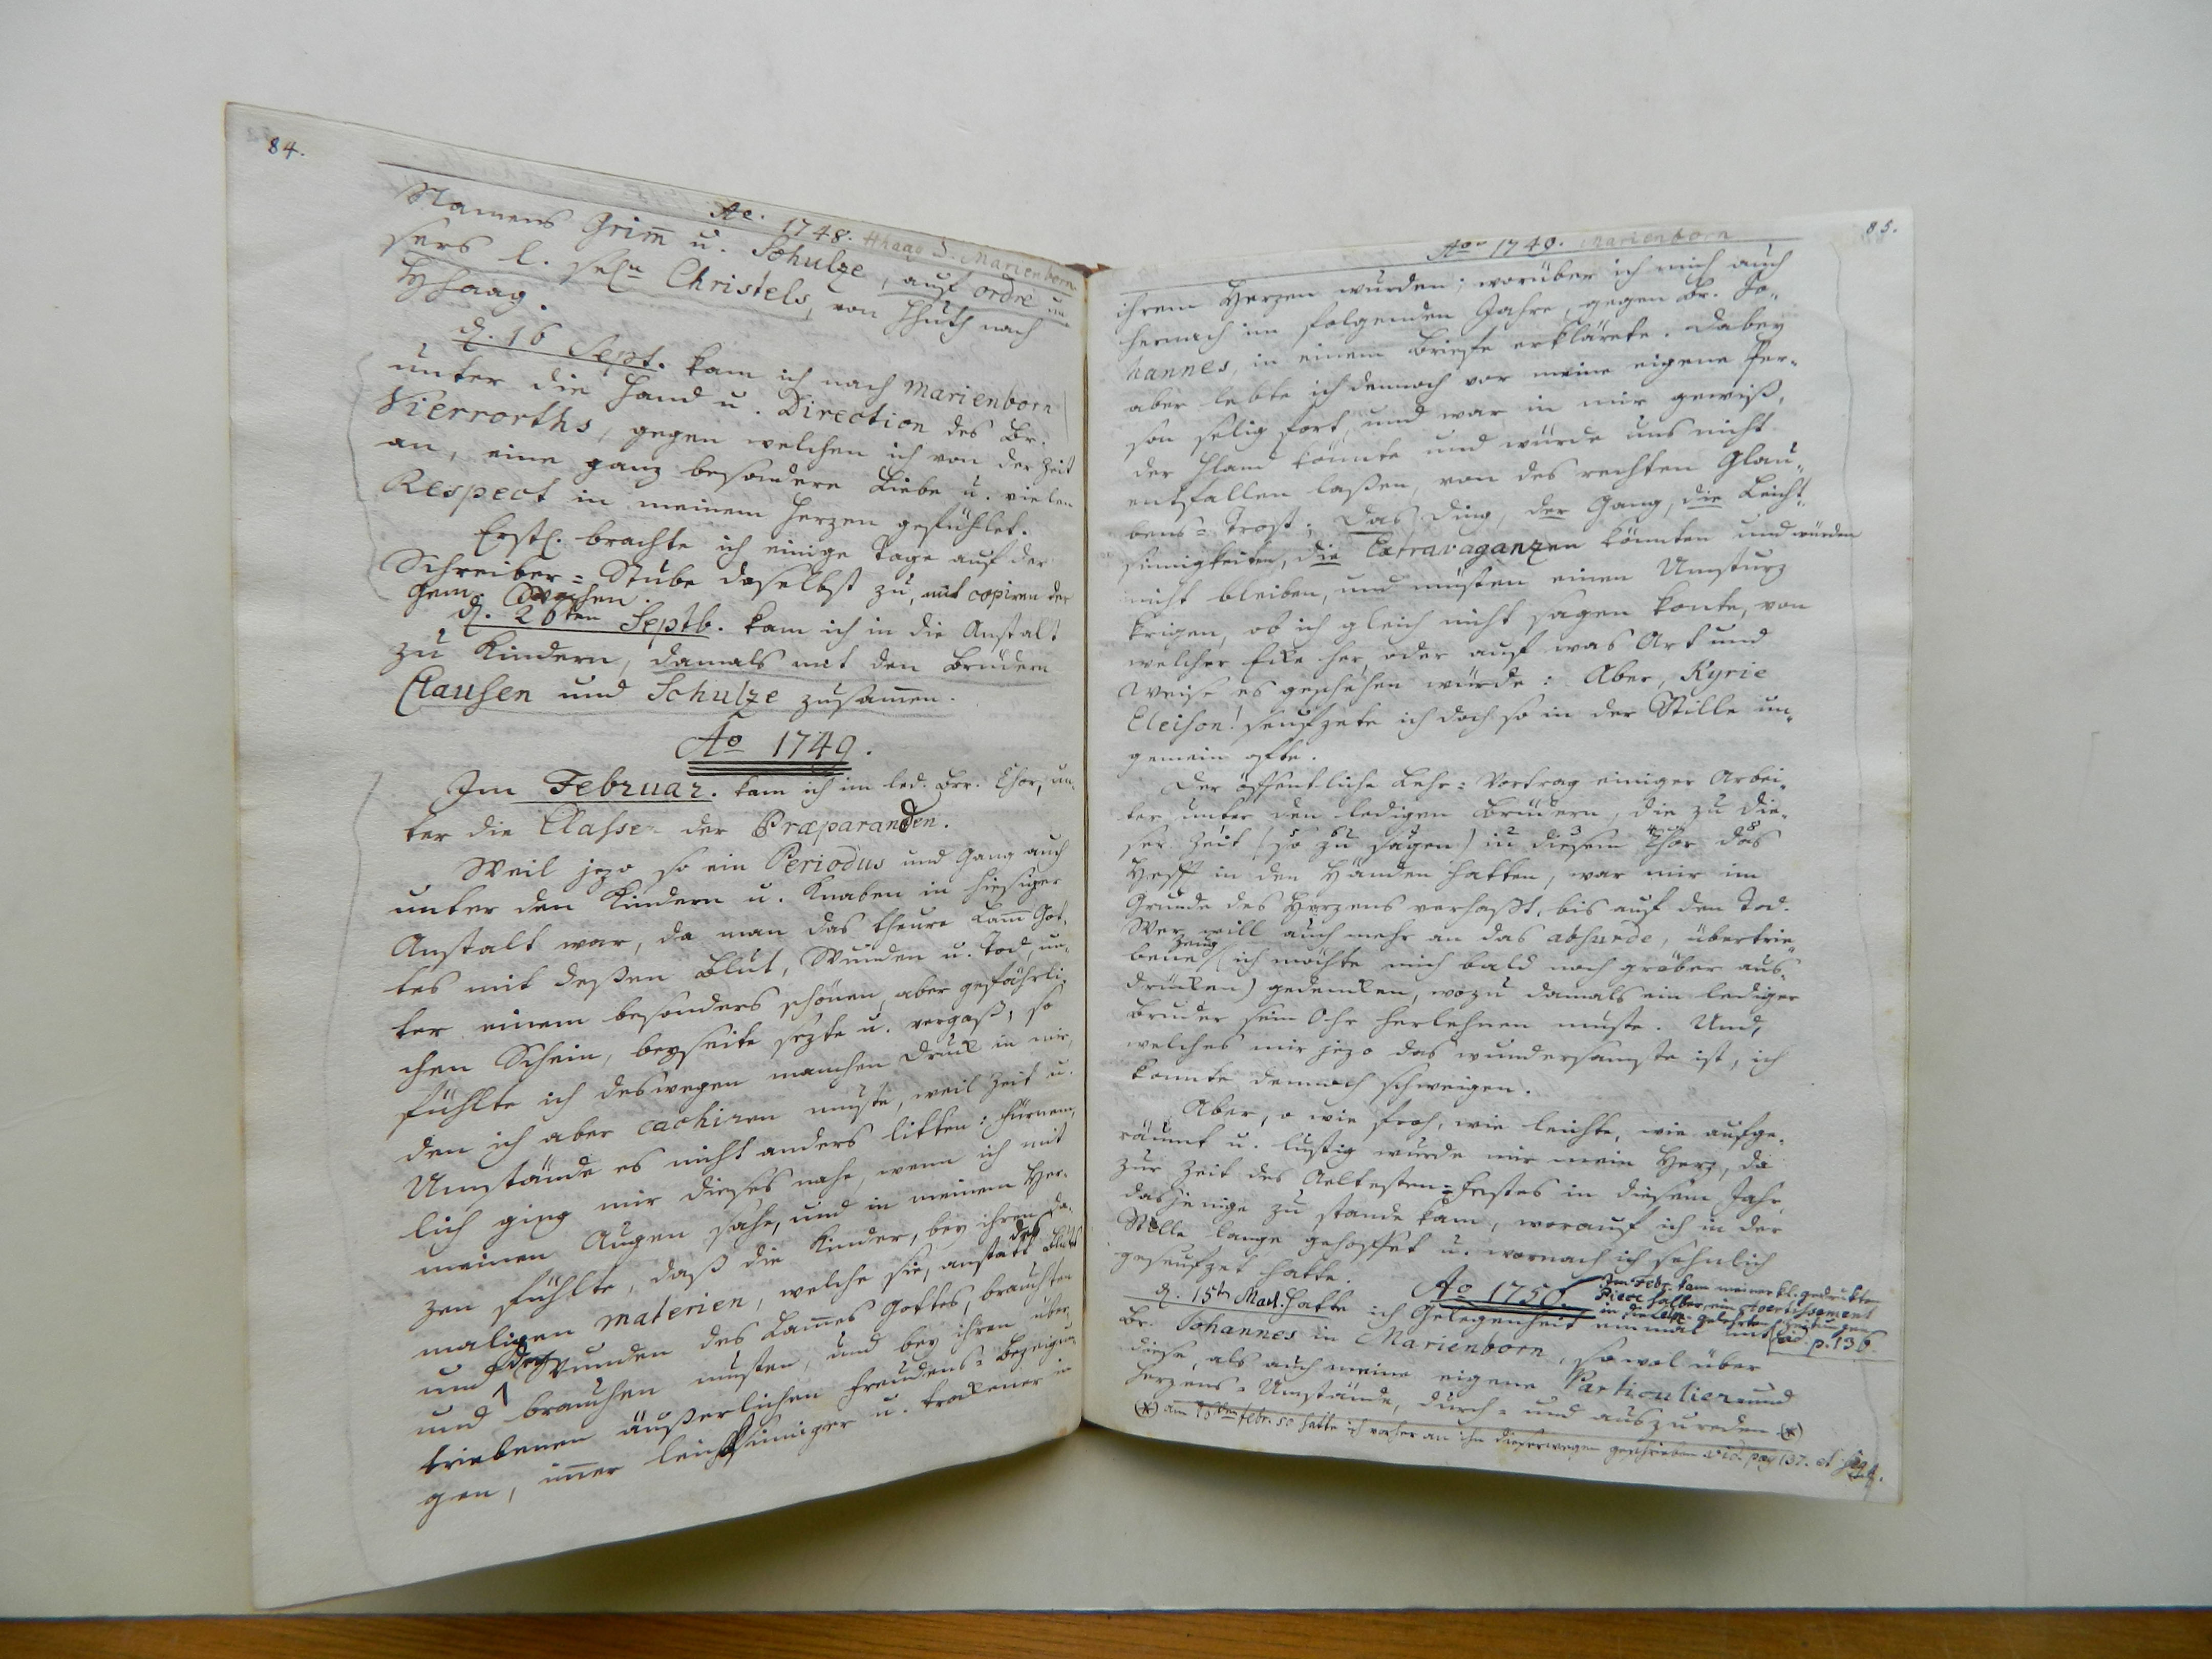 84.
Ae. 1748. Hhaag u. Marienborn.
Namens Grim̅ u. Schulze, auf ordre un-
sers l. sel.n Christels, von Hhuth nach
HHaag.
d. 16 Sept. kam ich nach Marienborn
unter die Hand u. Direction des Br.
Vierrorths, gegen welchen ich von der Zeit
an, eine ganz besondere Liebe u. vielen
Respect in meinem Herzen gefühlet.
Erstl. brachte ich einige Tage auf der
Schreiber=Stube daselbst zu, mit copiren der
Gem.
d. 26ten Septb. kam ich in die Anstalt
zu Kindern, damals mit den Brüdern
Clausen und Schulze zusam̅en.
Ao 1749.
Im Februar. kam ich im led. Brr. Chor, un-
ter die Classen der Præparanden.
Weil jezo so ein Periodus und Gang auch
unter den Kindern u. Knaben in hiesiger
Anstalt war, da man das theure Lam̅ Got-
tes mit deßen Blut, Wunden u. Tod, un-
ter einem besonders schönen, aber gefährli-
chen Schein, beyseite sezte u. vergaß; so
fühlte ich deswegen manchen Druck in mir,
den ich aber cachiren muste, weil Zeit u.
Umstände es nicht anders litten; Fürnem-
lich ging mir dieses nahe, wenn ich mit
meinen Augen sahe, und in meinem Her-
zen fühlte, daß die Kinder, bey ihren da-
maligen materien, welche sie, anstatt des Bluts
und der Wunden des Lam̅es Gottes, brauchten
und brauchen musten, und bey ihren über-
triebenen äußerlichen Freudens=Bezeigun-
gen, im̅er leichtsinniger u. trockener in
85.
Aoe 1749. Marienborn
ihrem Herzen wurden; worüber ich mich auch
hernach im folgenden Jahre, gegen Br. Jo-
hannes, in einem Briefe erklärete. Dabey
aber lebte ich dennoch vor meine eigene Per-
son selig fort, und war in mir gewiß,
der Hland könnte und würde uns nicht
entfallen laßen, von des rechten Glau-
bens=Trost; Das Ding, der Gang, die Leicht-
sinnigkeiten, die Extravaganzen könnten und würden
nicht bleiben, und müsten einen Umsturz
krigen, ob ich gleich nicht sagen konte, von
welcher Ecke her, oder auf was Art und
Weise es geschehen würde: Aber, Kyrie
Eleison! seufzete ich doch so in der Stille un-
gemein ofte.
Der öffentliche Lehr=Vortrag einiger Arbei-
ter unter den ledigen Brüdern, die zu die-
ser Zeit (so zu sagen) in diesem Chor das
Heft in den Händen hatten, war mir im
Grunde des Herzens verhaßt, bis auf den Tod.
Wer will auch mehr an das absurde, übertrie-
bene Zeug (ich möchte mich bald noch gröber aus-
drücken) gedencken, wozu damals ein lediger
Bruder sein Ohr herlehnen muste. Und,
welches mir jezo das wundersamste ist, ich
konnte dennoch schweigen.
Aber, o wie froh, wie leichte, wie aufge-
räumt u. lustig wurde mir mein Herz, da
zur Zeit des Aeltesten=Festes in diesem Jahr,
dasjenige zu stande kam, worauf ich in der
Stille lange gehoffet u. wornach ich sehnlich
geseufzet hatte.
Ao 1750.
Im Febr. kam meiner gedruckten
Piece halber, ein Avertissement
in die Leipz. gelehrten Zeitungen
vid. p. 136
d. 15ten Mart. hatte ich Gelegenheit einmal mit
Br. Johannes in Marienborn, sowol über
diese, als auch meine eigene Particulier und
Herzens=Umstände, durch= und auszureden. (*)
(*) am Febr. 50 hatte ich vorher an ihn dieserwegen geschrieben vid. pag 137. et seq.